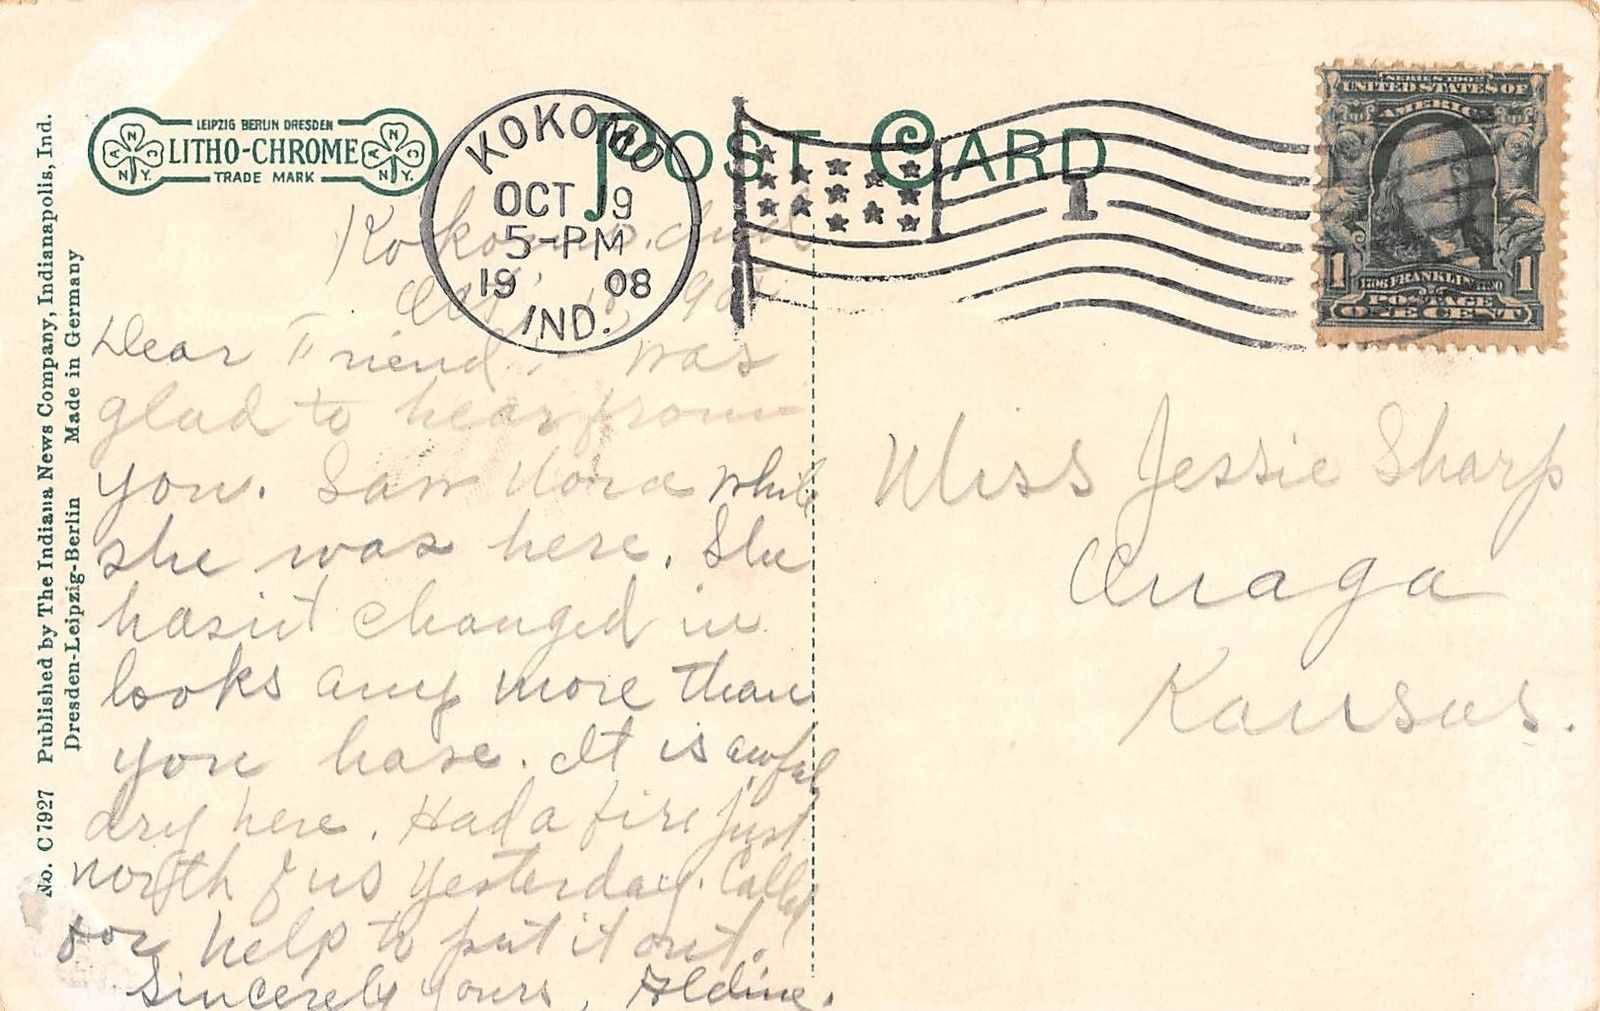 No. C 7927 Published by The Indiana News Company, Indianapolis, Ind.
Dresden-Leipzig-Berlin Made in Germany
LEIPZIG BERLIN DRESDEN
LITHO-CHROME
TRADE MARK
A N C N.Y.
A N C N.Y.
POST CARD
KOKOMO
OCT 19
5-PM
19 08
IND.
1
SERIES 1902
UNITED STATES OF
AMERICA
1 1
FRANKLIN
POSTAGE
ONE CENT
Kokomo, Ind.
Oct.
Dear Friend, I was
glad to hear from
you. Saw Nora while
she was here. She
hasn't changed in
looks any more than
you have. It is awful
dry here. Had a fire just
north of us yesterday. Called
for help to put it out.
Sincerely yours, Aldine.
Miss Jessie Sharp
Onaga
Kansas.